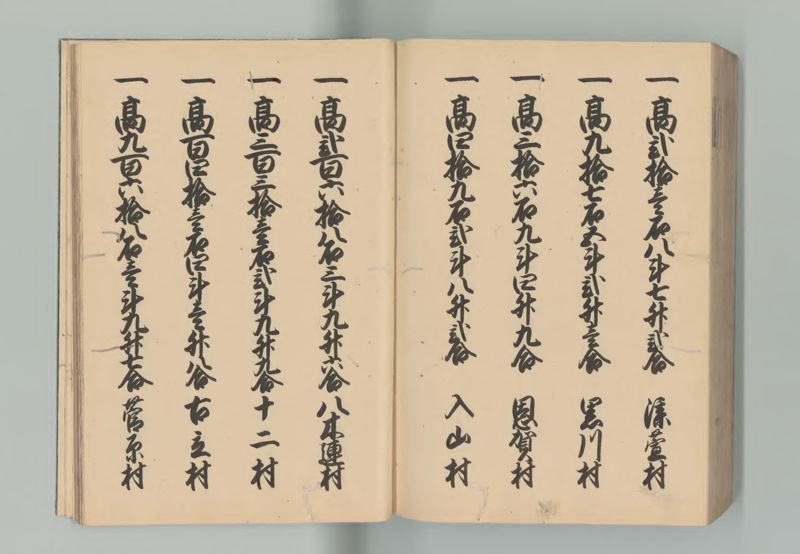 一 高弐拾壱石八斗七升弐合 漆萱村
一 高九拾七石五斗弐升壱合 黒川村
一 高三拾六石九斗四升九合 恩賀村
一 高四拾九石弐斗八升弐合 入山村
一 高弐百六拾八石三斗九升六合 八木連村
一 高三百三拾壱石弐斗九升九合 十二村
一 高百四拾壱石四斗壱升八合 古立村
一 高九百六拾八石壱斗九升七合 菅原村